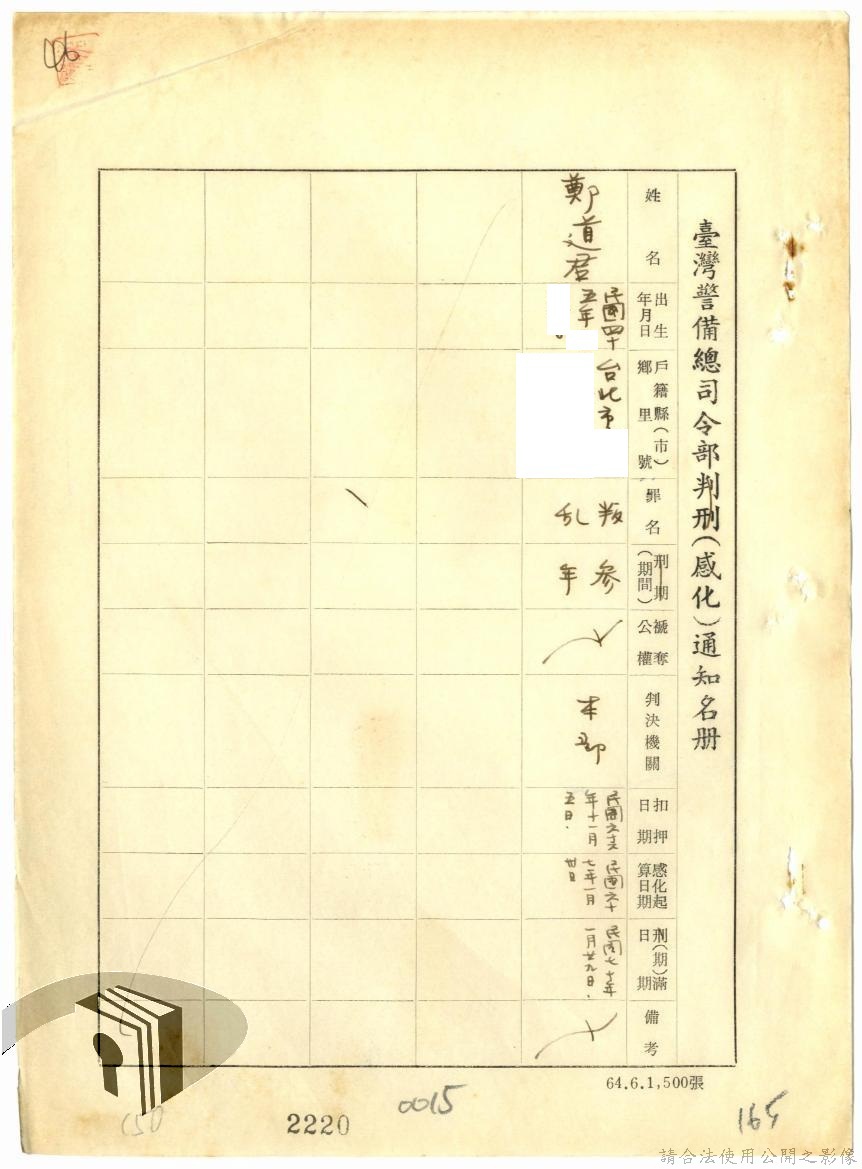 臺灣警備總司令部判刑(感化)通知名册
姓名
鄭道君
出生年月日
民國四十五年
戶籍縣(市)鄉里號
台北市
罪名
叛乱
刑期(期間)
參年
褫奪公權
判決機關
本部
扣押日期
民國六十六年十一月五日.
感化起算日期
民國六十七年一月卅日
刑(期)滿日期
民國七十年一月廿九日.
備考
64.6.1,500張
0015
2220
165
150
請合法使用公開之影像